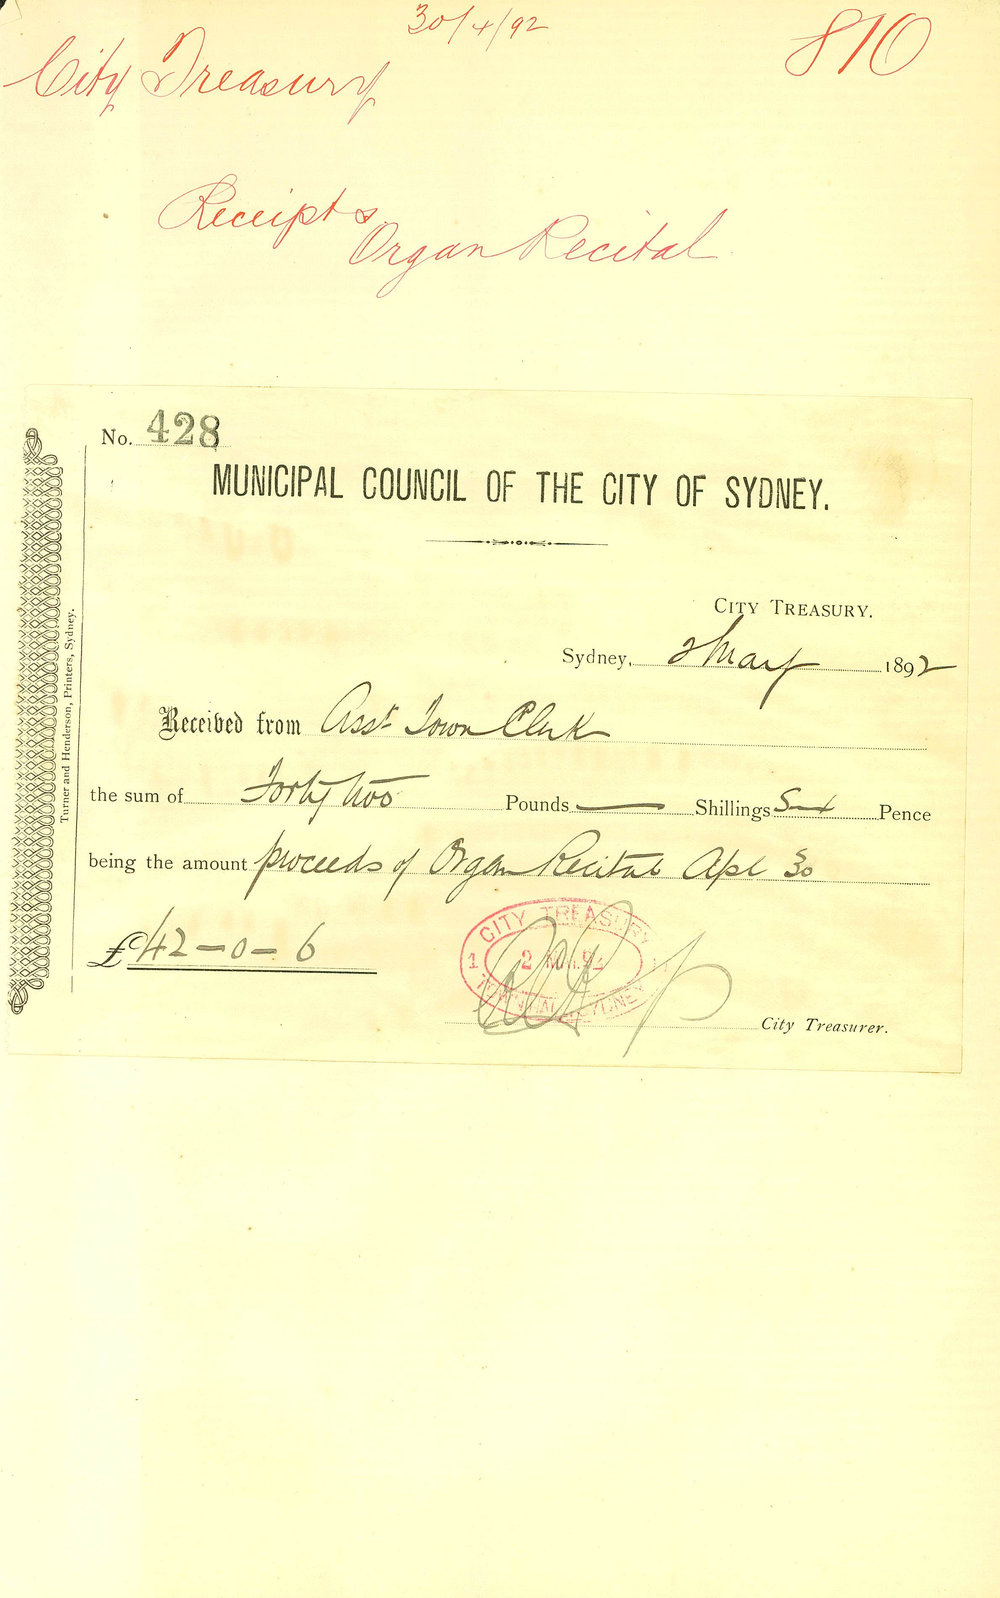 30/4/92
810
City Treasury
Receipts
Organ Recital
No. 428
MUNICIPAL COUNCIL OF THE CITY OF SYDNEY.
CITY TREASURY.
Sydney, 2 May 1892
Received from Asst Town Clerk
the sum of Forty two Pounds — Shillings Six Pence
being the amount proceeds of Organ Recital Apl 30
£42-0-6
CITY TREASURY
2 MAY. 92
TOWN HALL SYDNEY
City Treasurer.
Turner and Henderson, Printers, Sydney.